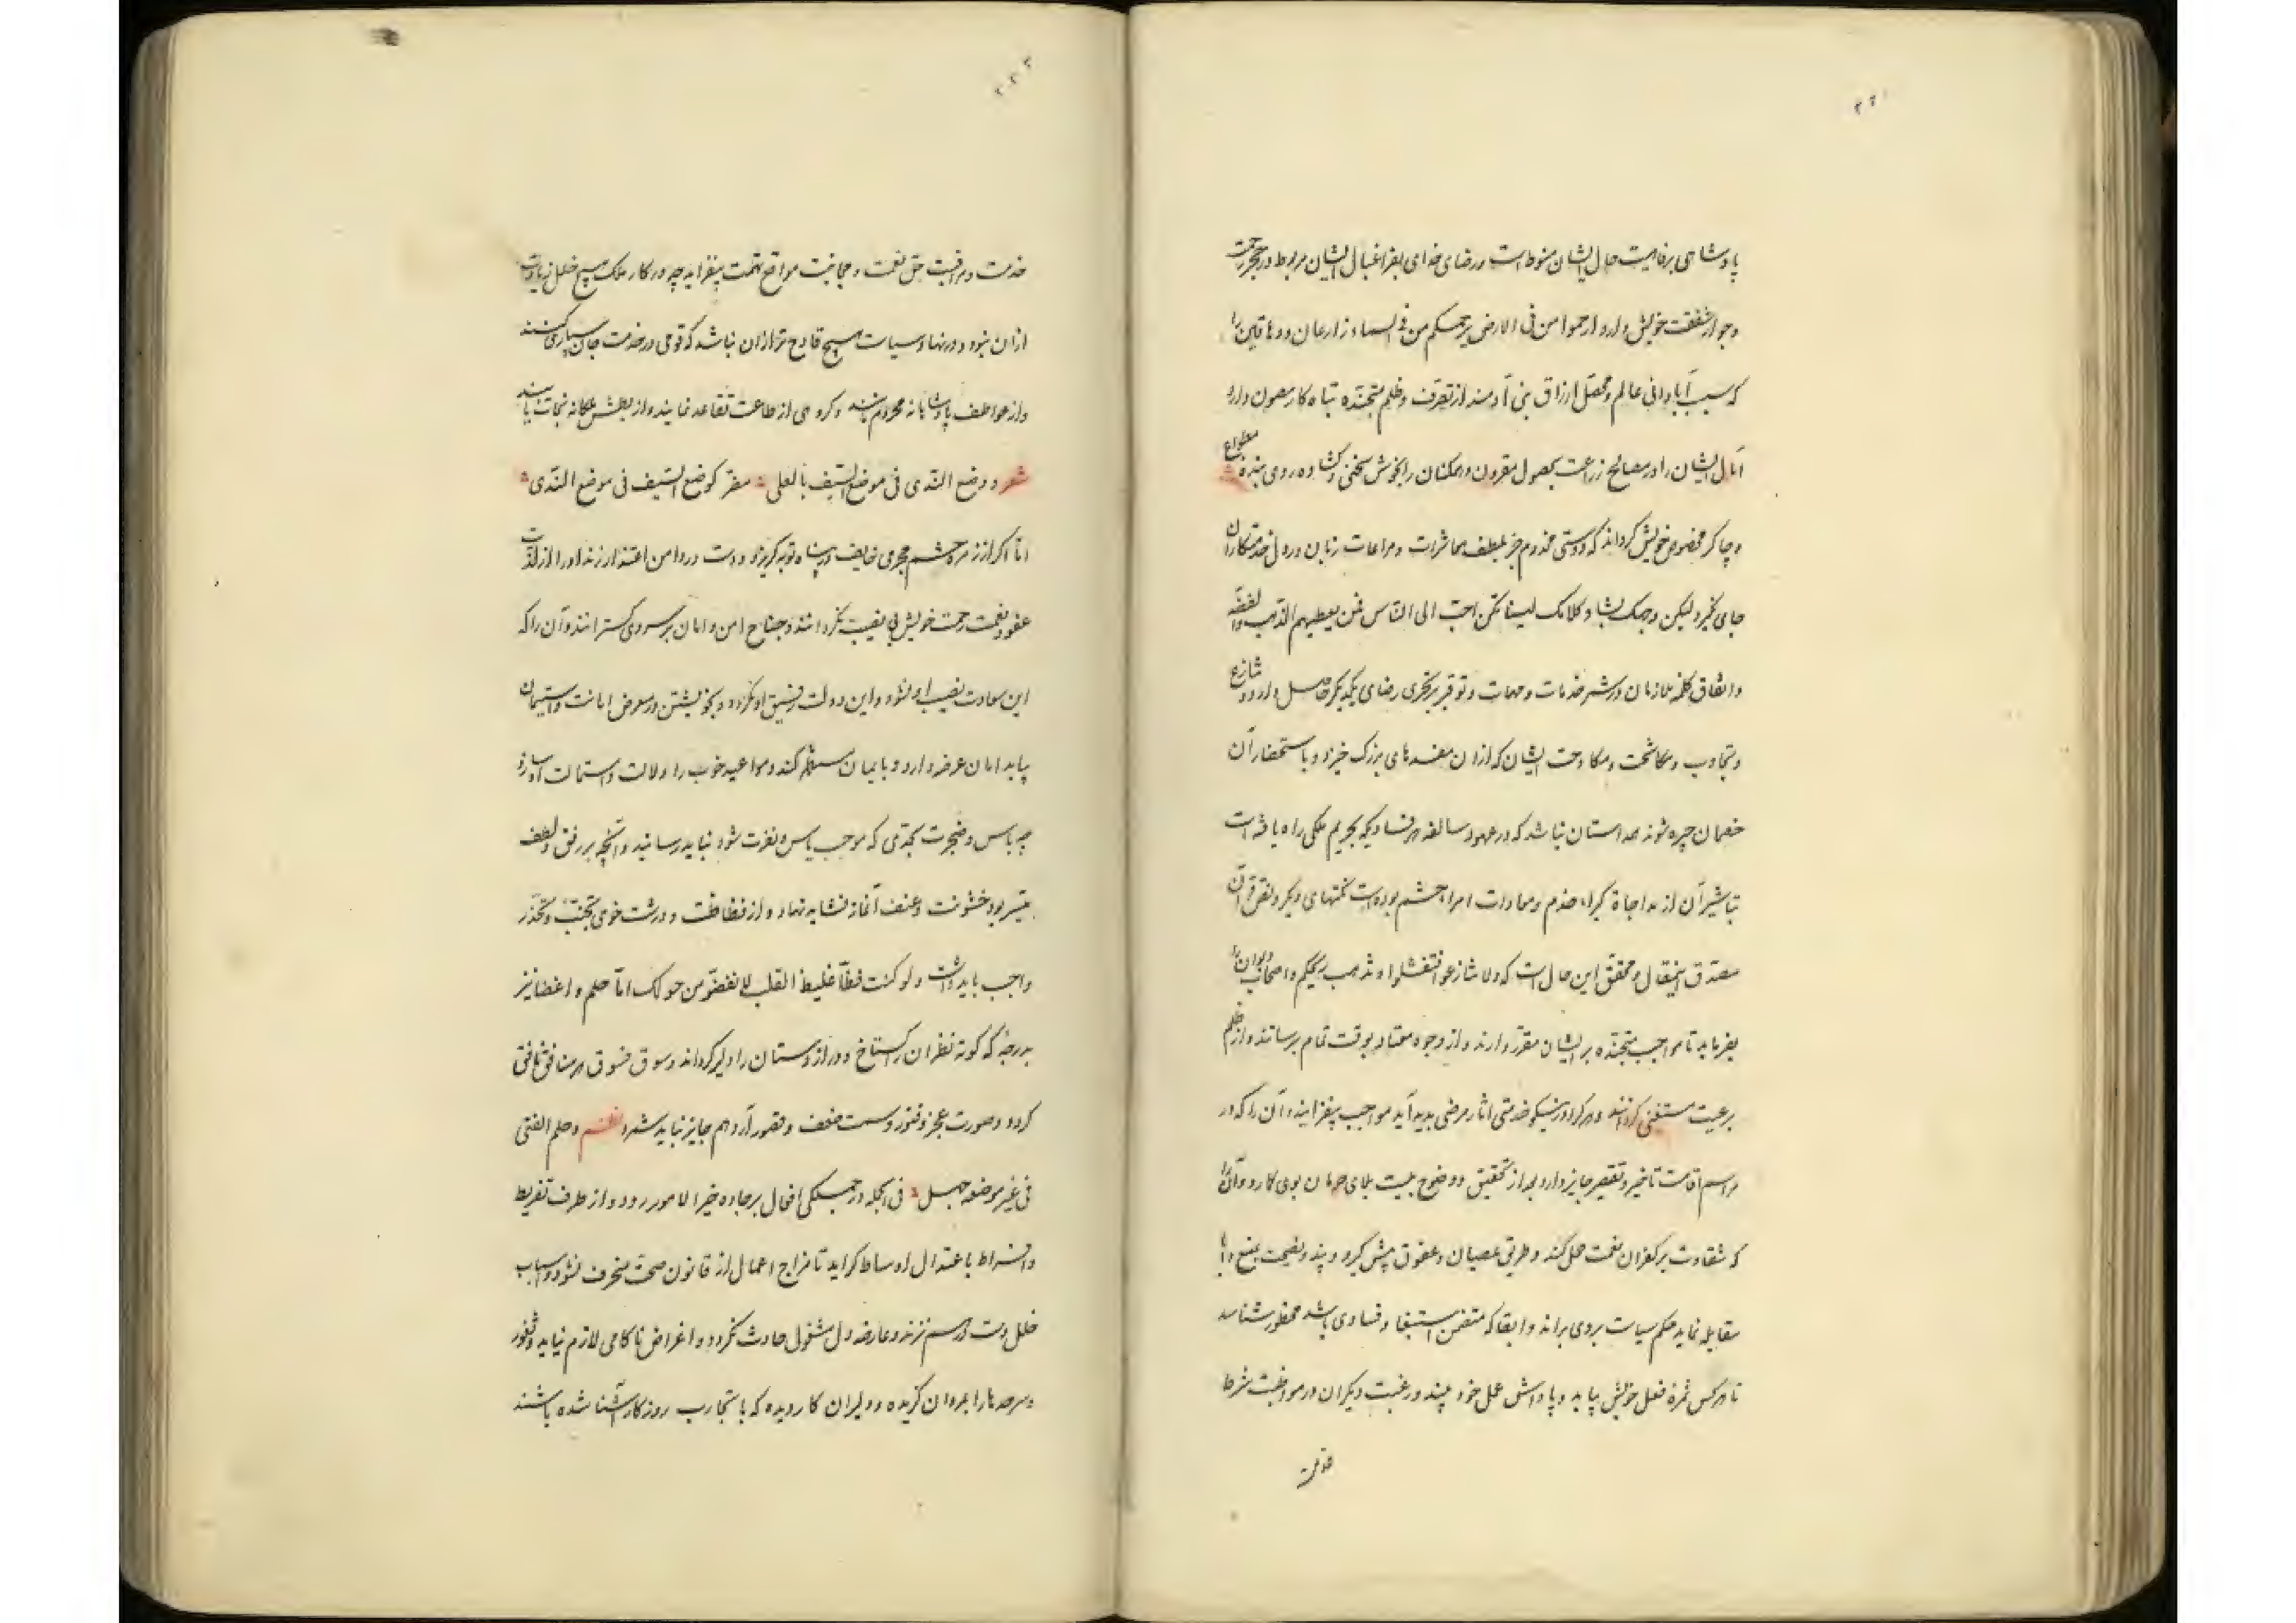 پادشاهی برفاهیت حال ایشان منوط است و رضای خدای بفراغبال ایشان مربوط در حجر رحمت
و جوار شفقت خویش دارد ارحموا من فی الارض یرحمکم من فی السماء زارعان و دهاقین را
که سبب آبادانی عالم و محصل ارزاق بنی آدمند از تصرف و ظلم متجنده تباه کار مصون دارد
آمال ایشان را در مصالح زراعت بحصول مقرون و همکنان را بخوش سخنی و کشاده روی بنده مطواع
و چاکر مخصوص خویش کرداند که دوستی مخدوم جز بلطف معاشرات و مراعات زبان در دل خدمتکاران
جای نکیرد لیکن وجهک بشا و کلامک لینا تکن احب الی الناس ممن یعطیهم الذهب والفضه
و اتفاق کلمه ملازمان در شر خدمات و مهمات و توقیر بر تحری رضای یکدیکر حاصل دارد و تنازع
و تجاوب و مکاشحت و مکاوحت ایشان که ازان مفسدهای بزرک خیزد و باستحضار آن
خصمان چیره شوند همداستان نباشد که در عهود سالفه هر فسادیکه بحریم ملکی راه یافته است
تباشیر آن از مداجاة کبراء خدم و معادات امراء حشم بوده است نکتهای دیکر و نص قرآن
مصدق اینمقال و محقق این حال است که ولا تنازعوا فتفشلوا و تذهب ریحکم و اصحاب دیوان را
بفرماید تا مواجب متجنده بر ایشان مقرر دارند و از وجوه معتاد بوقت تمام برسانند و از ظلم
برعیت مستغنی کردانند و هر که را در نیکو خدمتی اثار مرضی بدید آید مواجب بیفزایند و آن را که در
مراسم اقامت تاخیر و تقصیر جایز دارد بعد از تحقیق و وضوح بینت بلای حرمان بوی کارد و آن را
که شقاوت بر کفران نعمت حمل کند و طریق عصیان و عقوق پیش کیرد و پند و نصیحت بمنع و ابا
مقابله نماید حکم سیاست بروی براند و ابقا که متضمن استبغا و فسادی باشد محظور شناسد
تا هر کس ثمره فعل خویش بیابد و پاداش عمل خود بیند و رغبت دیکران در مواظبت شرط
خدمت
۲۲۲
خدمت و مراقبت حق نعمت و مجانبت مواقع تهمت بیفزاید چه در کار ملک هیچ خلل زیادت
ازان نبود و در نهاد سیاست هیچ قادح تر ازان نباشد که قومی در خدمت جان سپاری کنند
و از عواطف پادشاهانه محروم باشند و کروهی از طاعت تقاعد نمایند و از بطش ملکانه نجات یابند
شعر و وضع الندی فی موضع السیف بالعلی مضر کوضع السیف فی موضع الندی
اما اکر از زمره حشم مجرمی خایف در پناه توبه کریزد و دست در دامن اعتذار زند او را از لذت
عفو و نعمت رحمت خویش بی نصیب نکردانند و جناح امن و امان بر سر وی کسترانند و آن را که
این سعادت نصیب او نشود و این دولت رفیق او نکردد و بخویشتن در معرض امانت و استیمان
بیاید امان عرضه دارد و بایمان مستظهر کند و مواعید خوب را دلالت و استمالت او سازد
چه باس و ضجرت بحدی که موجب یاس و نفرت شود نباید رسانید و آنچه بر رفق و لطف
میسر بود خشونت و عنف آغاز نشاید نهاد و از فظاظت و درشت خوی تجنب و تحذر
واجب باید داشت و لو کنت فظا غلیظ القلب لانفضوا من حولک اما حلم و اغضا نیز
بدرجه که کوته نظران را کستاخ و دراز دستان را دلیر کرداند و سوق فسوق هر منافق نافق
کردد و صورت عجز و فتور و سمت ضعف و قصور آرد هم جایز نباید شمرد نظم و حلم الفتی
فی غیر موضعه جهل فی الجمله در جملکی افعال بر جاده خیر الامور رود و از طرف تفریط
و افراط باعتدال اوساط کراید تا مزاج اعمال از قانون صحت منحرف نشود و اسباب
خلل دست در هم نزند و عارضه دل مشغول حادث نکردد و اغراض ناکامی لازم نیاید و ثغور
و سرحدها را بمردان کزیده و دلیران کار دیده که با تجارب روزکار آشنا شده باشند